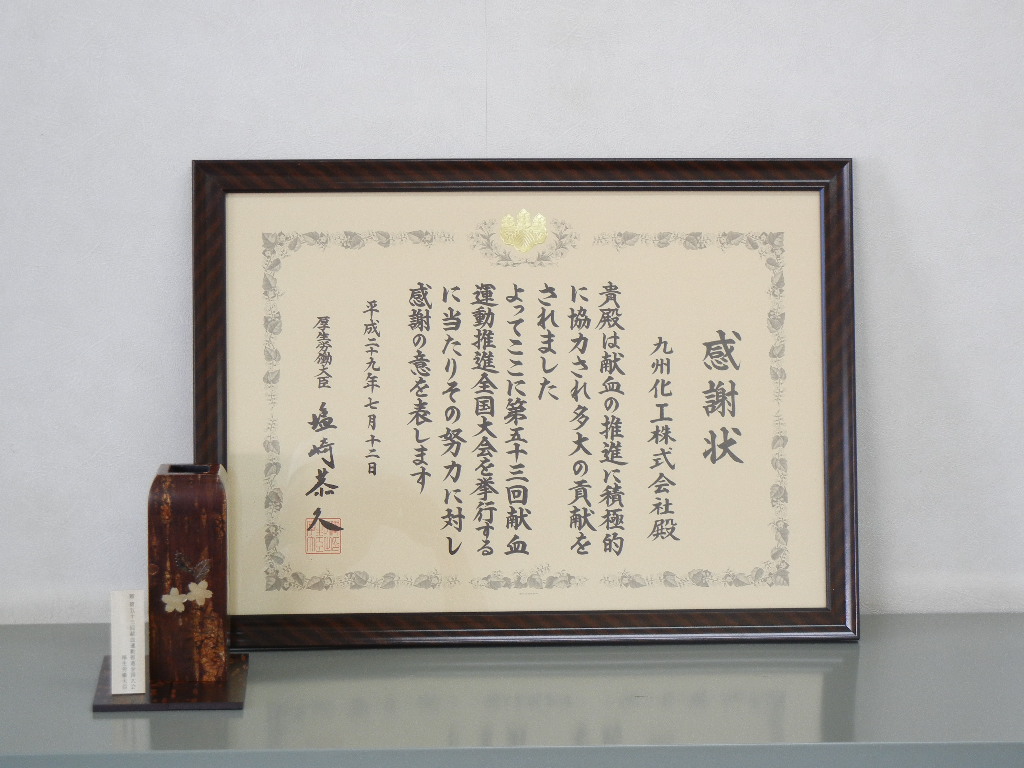 感謝状
九州化工株式会社殿
貴殿は献血の推進に積極的
に協力され多大の貢献を
されました
よってここに第五十三回献血
運動推進全国大会を挙行する
に当たりその努力に対し
感謝の意を表します
平成二十九年七月十二日
厚生労働大臣 塩崎恭久